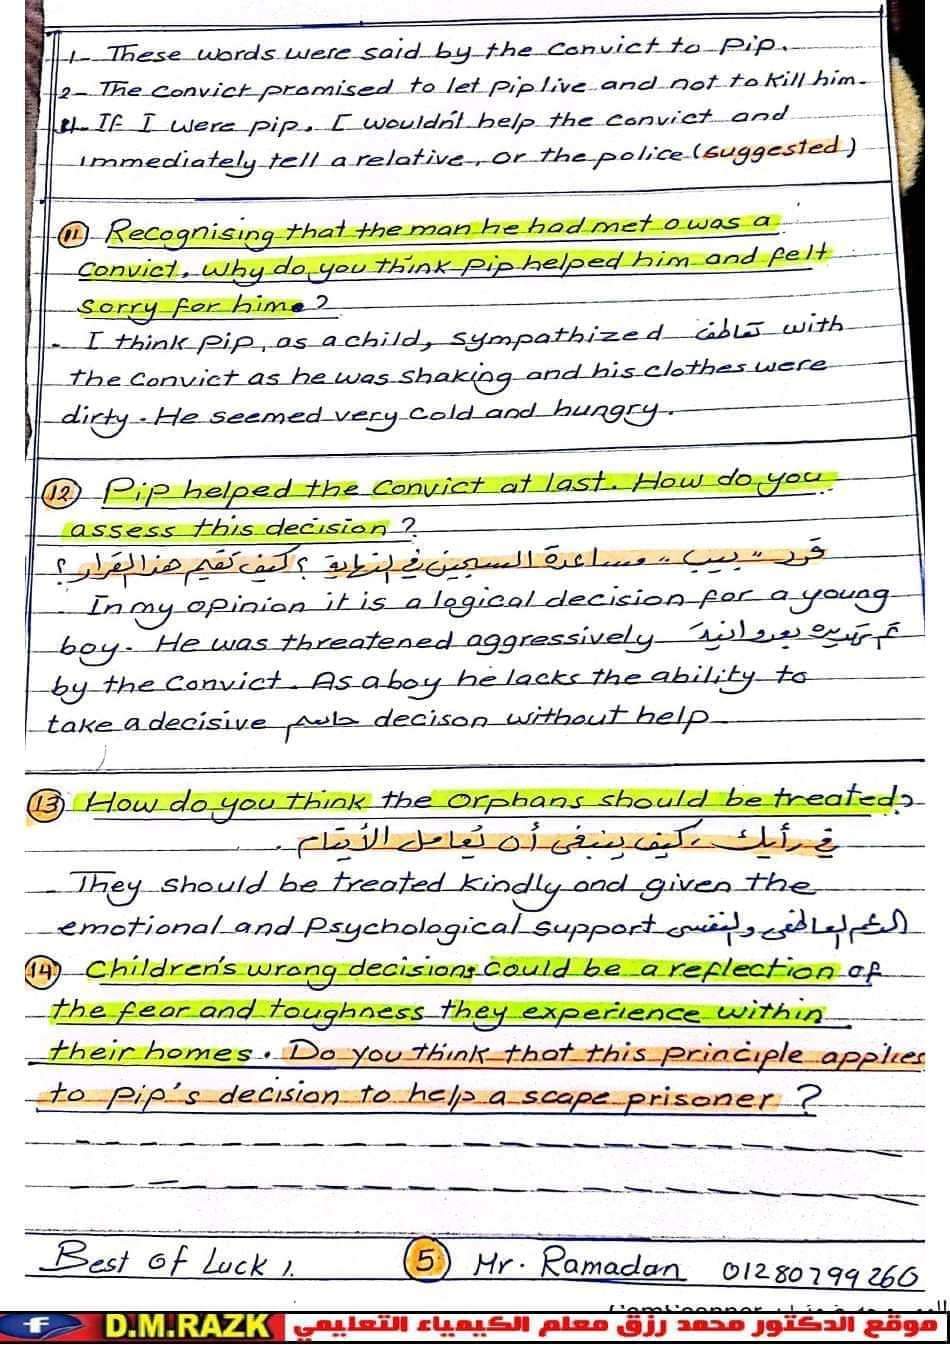 1- These words were said by the convict to Pip.
2- The convict promised to let Pip live and not to kill him.
If I were pip, I wouldn't help the convict and
immediately tell a relative, or the police (suggested)
11 Recognising that the man he had met o was a
convict, why do you think Pip helped him and felt
sorry for him?
- I think Pip, as a child, sympathized تعاطف with
the convict as he was shaking and his clothes were
dirty. He seemed very cold and hungry.
12 Pip helped the convict at last. How do you
assess this decision?
قرر "بيب" مساعدة السجين في النهاية؟ كيف تقيم هذا القرار؟
In my opinion it is a logical decision for a young
boy. He was threatened aggressively تم تهديده بعدوانية
by the convict. As a boy he lacks the ability to
take a decisive حاسم decison without help
13 How do you think the orphans should be treated?
في رأيك، كيف ينبغي أن يُعامل الأيتام.
- They should be treated kindly and given the
emotional and Psychological support الدعم العاطفي والنفسي
14 Children's wrong decisions could be a reflection of
the fear and toughness they experience within
their homes. Do you think that this principle applies
to Pip's decision to help a scape prisoner?
Best of Luck!. 5 Mr. Ramadan 01280799260
f D.M.RAZK موقع الدكتور محمد رزق معلم الكيمياء التعليمي